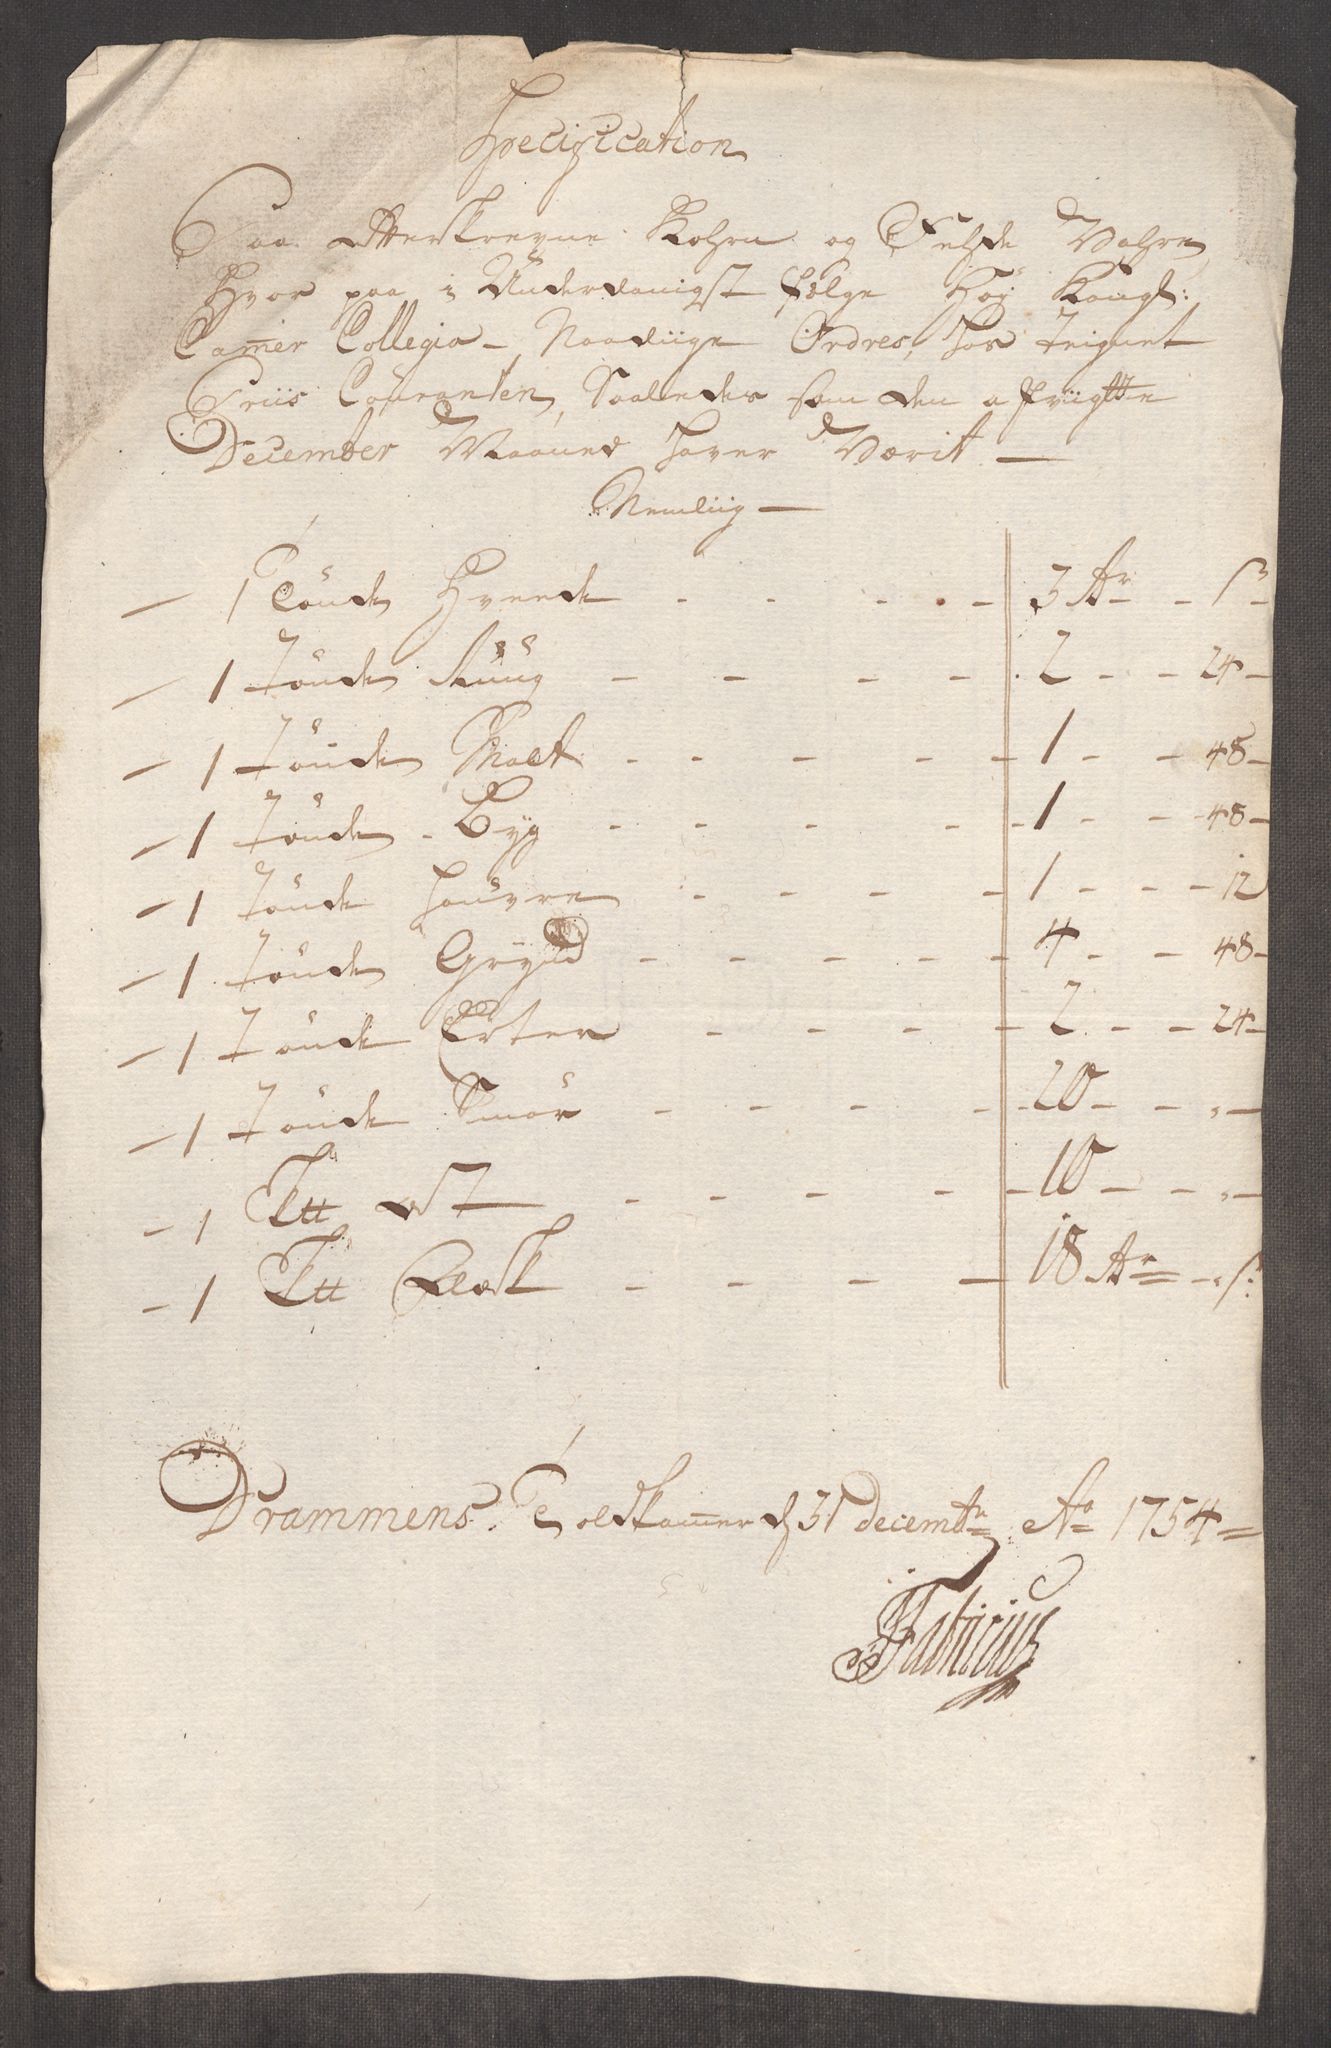 Specification
Paa Efterskrevne Kohrn og Fehde Vahre,
Hvor paa i Underdanigst følge Høy Kongl:
Camer Collegia Naadiige Ordres, hos teignet
Priis Couranten, Saaledes som den afviigte
December Maaned haver Værit —
Nemliig —
— 1 Tønde Hveede - - - - 3 Rdr - ß -
— 1 Tønde Rüug - - - - 2 - - 24 -
— 1 Tønde Malt - - - - 1 - - 48 -
— 1 Tønde Byg - - - - 1 - - 48 -
— 1 Tønde hauvre - - - - 1 - - 12
— 1 Tønde Gryn - - - - 4 - - 48 -
— 1 Tønde Erter - - - - 2 - - 24 -
— 1 Tønde Smør - - - - 20 - - „ -
— 1 Sk℔ ost - - - - 10 - - „ -
— 1 Sk℔ Flæsk - - - - 18 Rdr - „ ß:
Drammens Toldkamer d 31 decembr Ao 1754
Fabricius